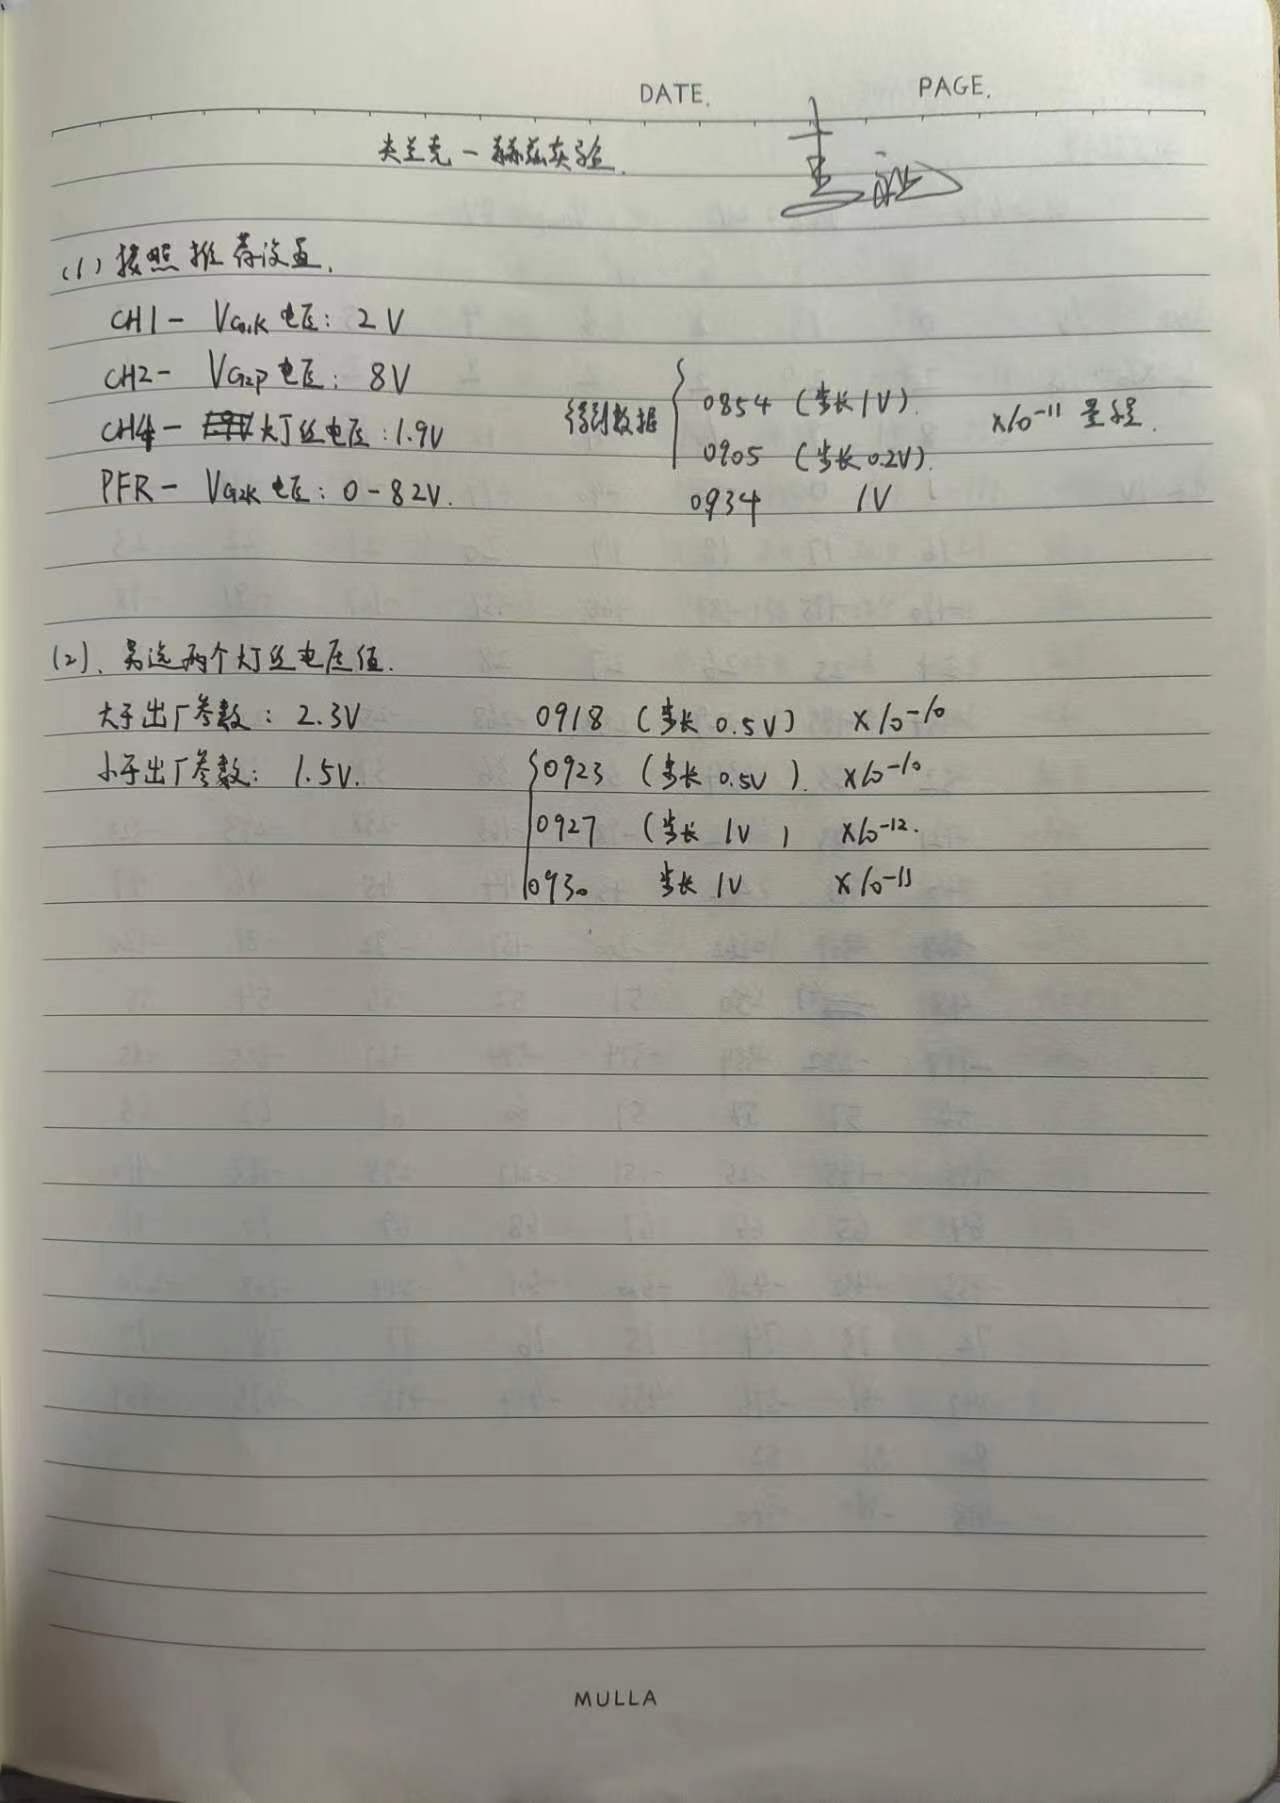 DATE. PAGE.
夫兰克-赫兹实验.
(1) 按照推荐设置.
CH1- VG1K电压: 2V
CH2- VG2P电压: 8V
CH4- 灯丝电压: 1.9V
PFR- VG2K电压: 0-82V.
得到数据 0854 (步长1V). ×10-11 量程.
0905 (步长0.2V).
0934 1V
(2). 另选两个灯丝电压值.
大于出厂参数: 2.3V 0918 (步长 0.5V) ×10-10
小于出厂参数: 1.5V. 0923 (步长 0.5V). ×10-10
0927 (步长 1V) ×10-12.
0930 步长 1V ×10-11
MULLA